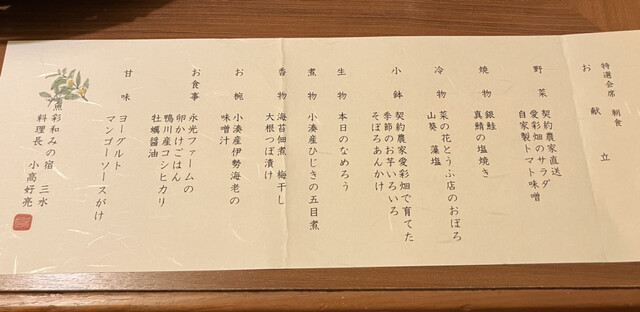 特選会席 朝食
お献立
野菜 契約農家直送
愛彩畑のサラダ
自家製トマト味噌
焼物 銀鮭
真鯖の塩焼き
冷物 菜の花とうふ店のおぼろ
山葵 藻塩
小鉢 契約農家愛彩畑で育てた
季節のお芋いろいろ
そぼろあんかけ
生物 本日のなめろう
煮物 小湊産ひじきの五目煮
香物 海苔佃煮 梅干し
大根つぼ漬け
お椀 小湊産伊勢海老の
味噌汁
お食事 永光ファームの
卵かけごはん
鴨川産コシヒカリ
牡蠣醤油
甘味 ヨーグルト
マンゴーソースがけ
魚彩和みの宿 三水
料理長 小高好亮